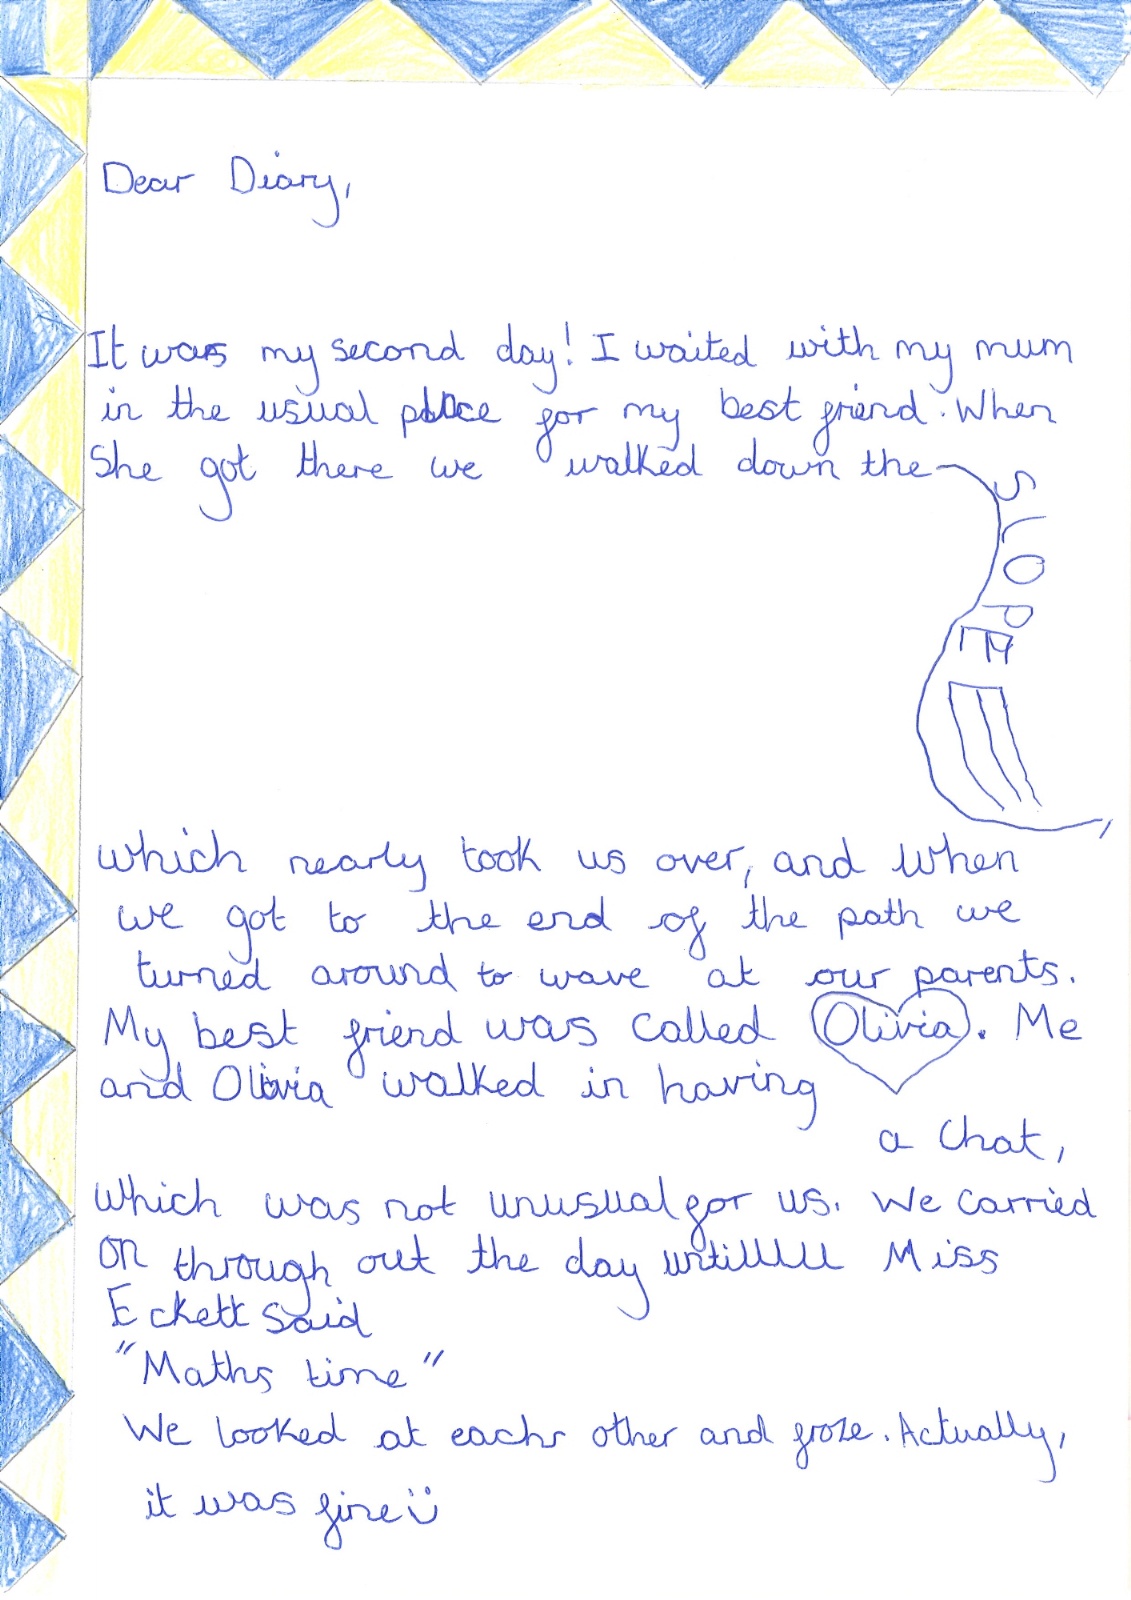 Dear Diary,
It was my second day! I waited with my mum
in the usual place for my best friend. When
She got there we walked down the
SLOPE,
which nearly took us over, and when
we got to the end of the path we
turned around to wave at our parents.
My best friend was called Olivia. Me
and Olivia walked in having
a chat,
which was not unusual for us. We carried
on through out the day untilllll Miss
Eckett said
"Maths time"
We looked at eachr other and froze. Actually,
it was fine